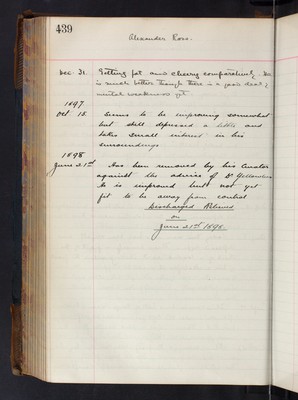 439
Alexander Ross.
Dec. 31. Getting fat and cheery comparatively. He
is much better though there is a good deal of
mental weakness yet
1897
Oct 15. Seems to be improving somewhat
but still depressed a little and
takes small interest in his
surroundings
1898
June 21st Has been removed by his Curator
against the advice of Dr Yellowlees
he is improved but not yet
fit to be away from control
Discharged Relieved
on
June 21st 1898.